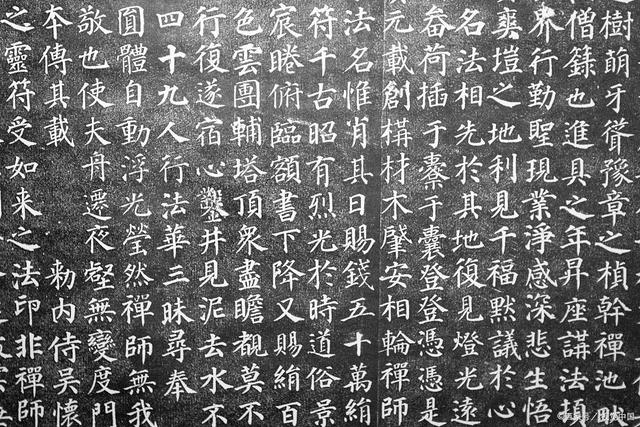 樹萌牙聳豫章之楨幹禪池
僧籙也進具之年昇座講法頓
界行勤聖現業淨感深悲生悟
爽塏之地利見千福默議於心
名法相先於其地復見燈光遠
畚荷插于橐于囊登登憑憑是
元載創構材木肇安相輪禪師
法名惟肖其日賜錢五十萬絹
符千古昭有烈光於時道俗景
宸睠俯臨額書下降又賜絹百
色雲團輔塔頂眾盡瞻覩莫不
行復遂宿心鑿井見泥去水不
四十九人行法華三昧尋奉
圓體自動浮光瑩然禪師無我
敬也使夫舟遷夜壑無變度門
本傳其載 勑內侍吳懷
之靈符受如來之法印非禪師